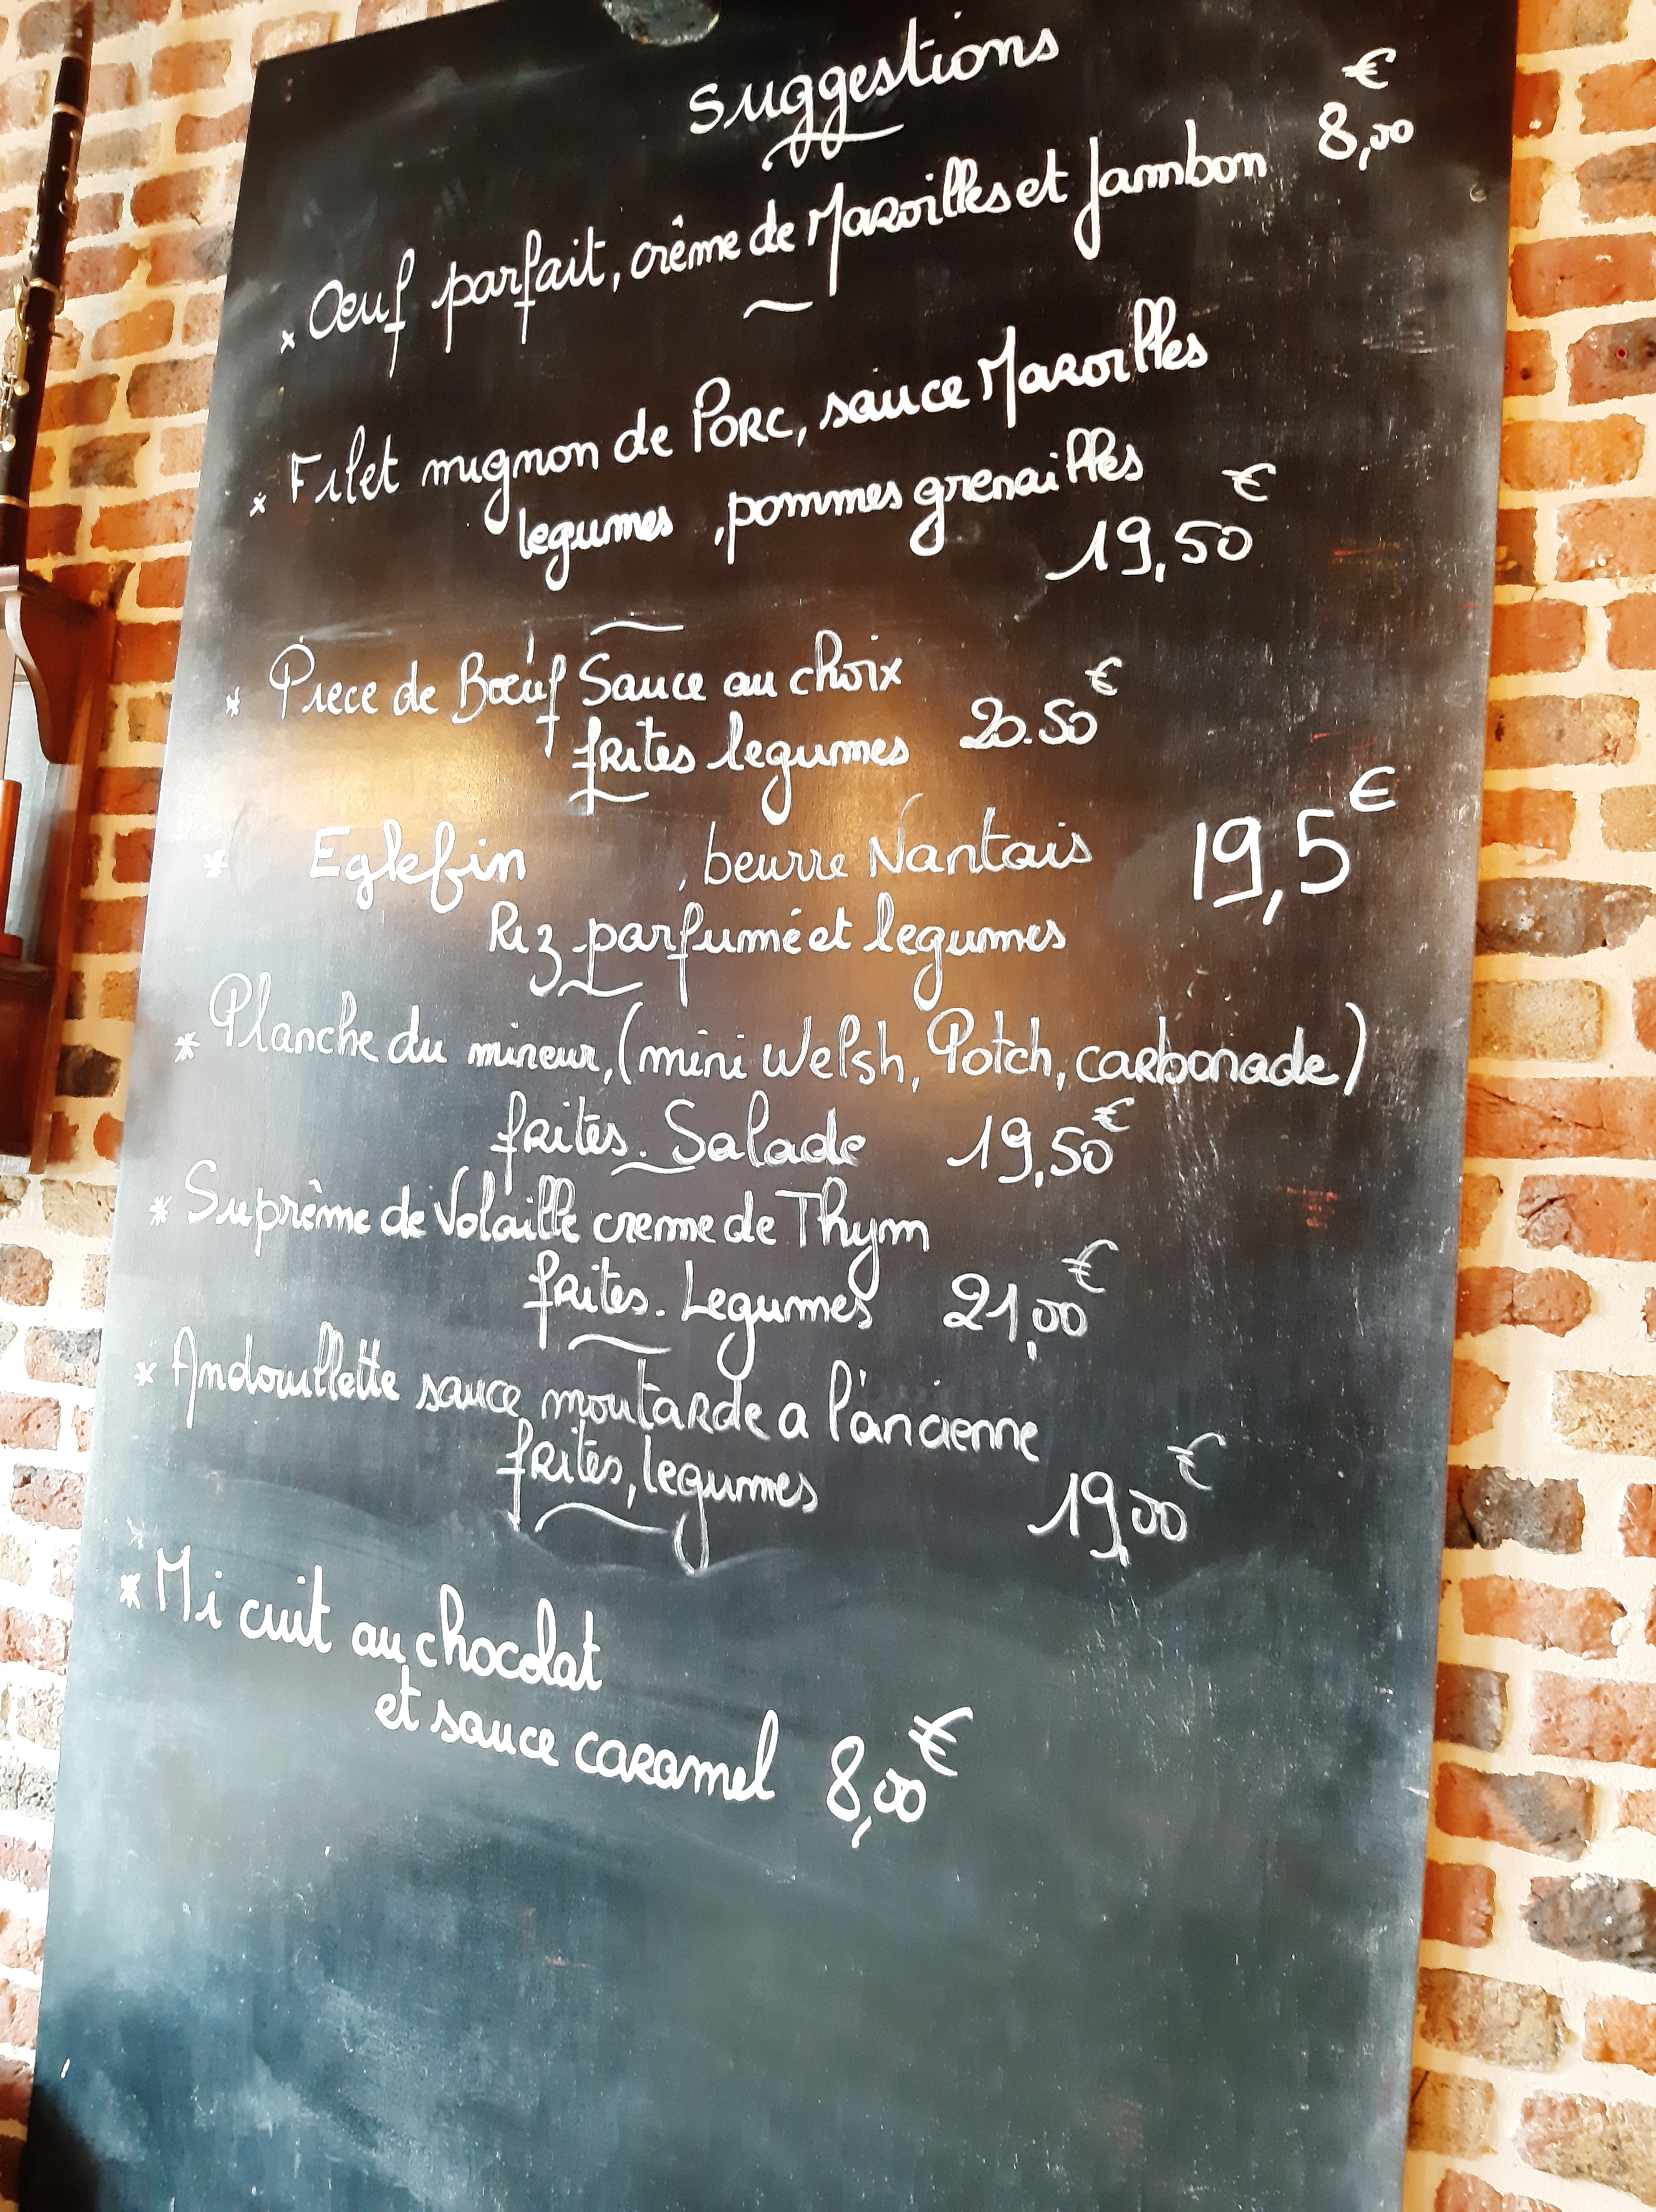 Suggestions
x Œuf parfait, crême de Maroilles et Jambon 8,00 €
x Filet mignon de Porc, sauce Maroilles
legumes , pommes grenailles
19,50 €
* Piece de Bœuf Sauce au choix
frites legumes 20.50 €
* Eglefin , beurre Nantais 19,5 €
Riz parfumé et legumes
* Planche du mineur, (mini Welsh, Potch, carbonade)
frites. Salade 19,50 €
* Suprême de Volaille creme de Thym
frites. Legumes 21,00 €
* Andouillette sauce moutarde a l'ancienne
frites, legumes 19,00 €
* Mi cuit au chocolat
et sauce caramel 8,00 €